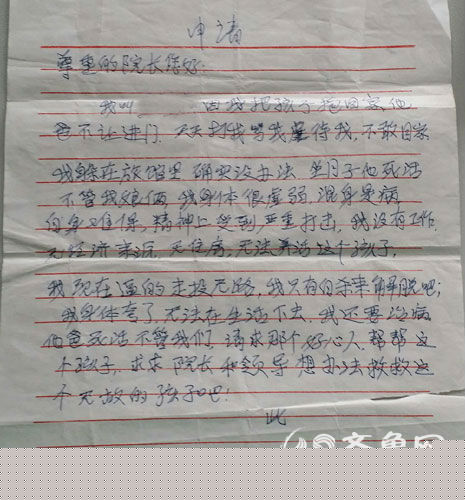 申请
尊重的院长您好:
我叫 因我把孩子抱回家他
爸不让进门.天天打我骂我虐待我,不敢回家
我躲在旅馆里 确实没办法 坐月子他死活
不管我娘俩 我身体很虚弱,混身是病
自身难保,精神上受到严重打击,我没有工作,
无经济来源,无住房,无法养活这个孩子,
我现在逼的走投无路,我只有自杀解脱吧;
我身体 了 无法在生活下去 我还要治病
他爸死活不管我们,请求那个好心人 帮帮这
个孩子,求求院长和领导想办法救救这
个无故的孩子吧!
此
齐鱼网